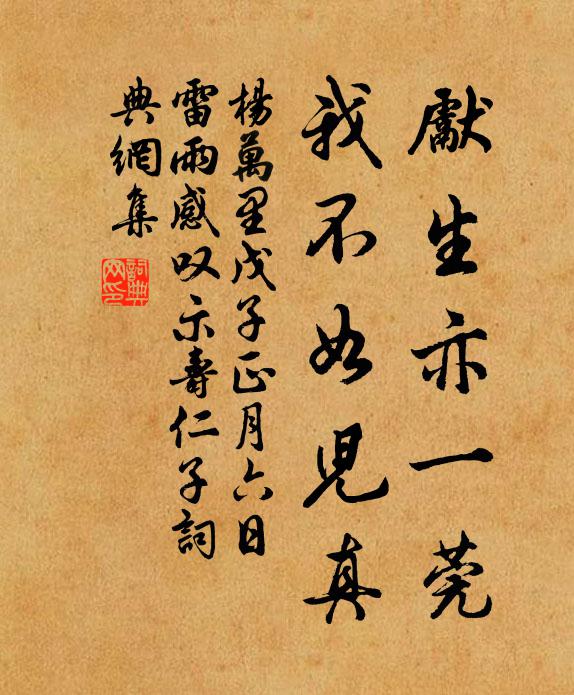 獻生亦一莞
我不如児真
楊萬里戊子正月六日
雷雨感叹示壽仁子詞
典網集
詞典网印